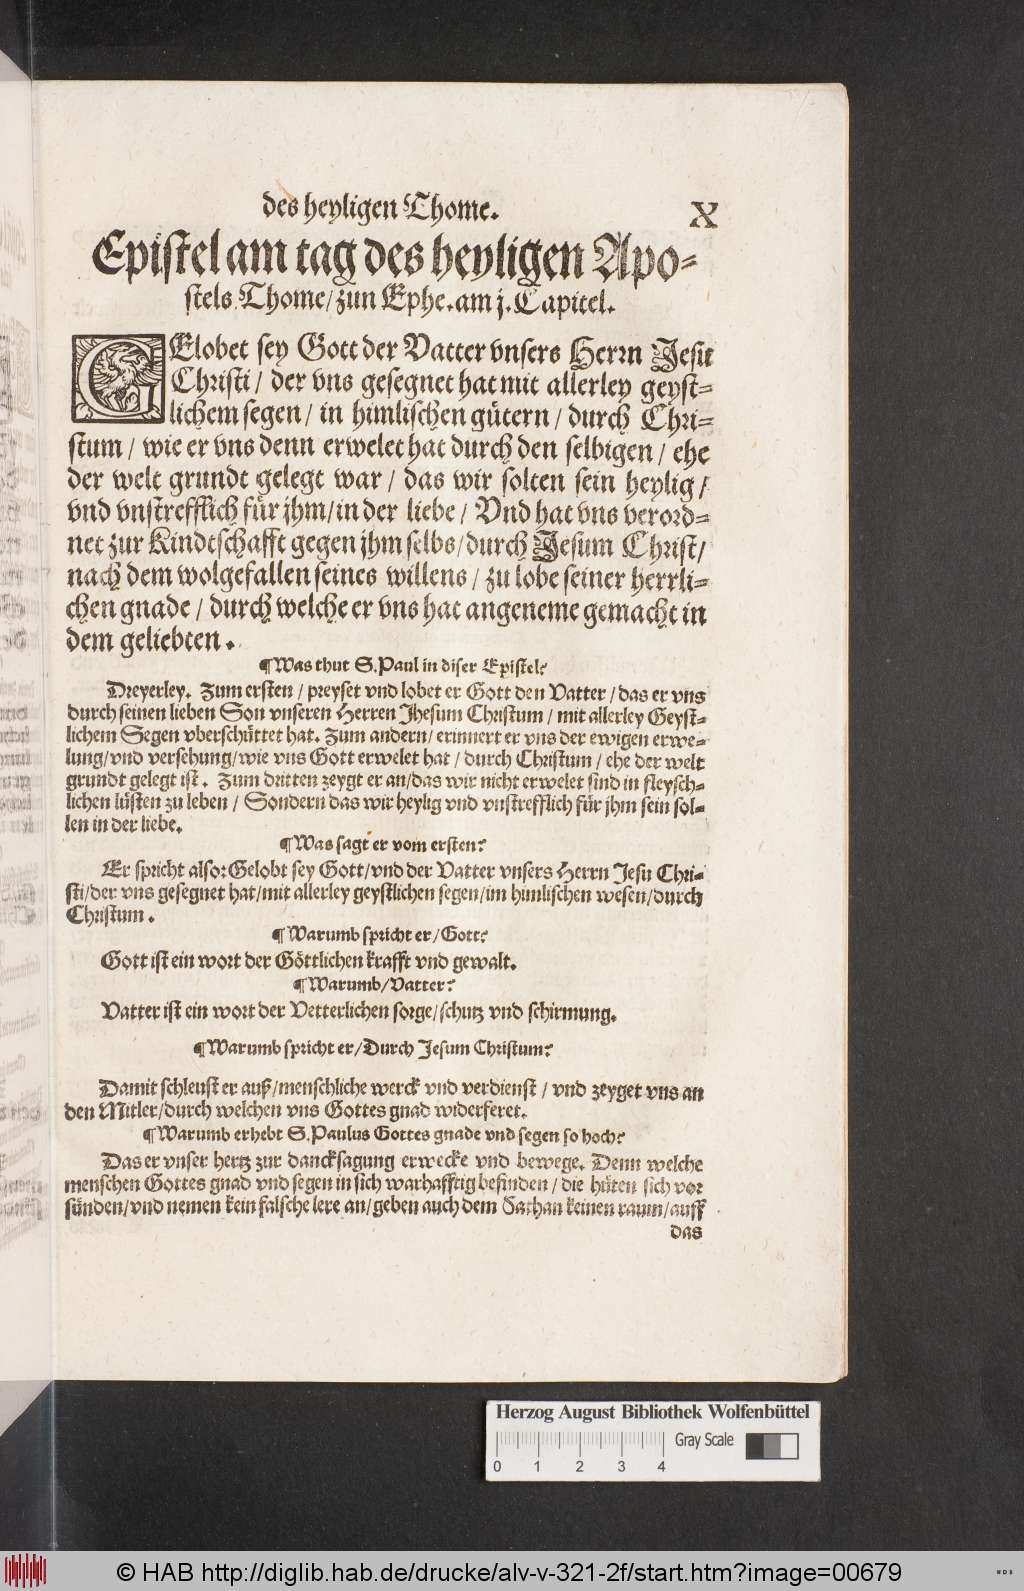 des heyligen Thome.
X
Epistel am tag des heyligen Apo-
stels Thome/ zun Ephe. am j. Capitel.
GElobet sey Gott der Vatter vnsers Herrn Jesu
Christi / der vns gesegnet hat mit allerley geyst-
lichem segen / in himlischen gütern / durch Chri-
stum / wie er vns denn erwelet hat durch den selbigen / ehe
der welt grundt gelegt war / das wir solten sein heylig /
vnd vnstrefflich für jhm/ in der liebe / Vnd hat vns verord-
net zur Kindtschafft gegen jhm selbs/ durch Jesum Christ/
nach dem wolgefallen seines willens / zu lobe seiner herrli-
chen gnade / durch welche er vns hat angeneme gemacht in
dem geliebten.
¶ Was thut S. Paul in diser Epistel?
Dreyerley. Zum ersten / preyset vnd lobet er Gott den Vatter / das er vns
durch seinen lieben Son vnseren Herren Jhesum Christum / mit allerley Geyst-
lichem Segen vberschüttet hat. Zum andern/ erinnert er vns der ewigen erwe-
lung/ vnd versehung/ wie vns Gott erwelet hat / durch Christum / ehe der welt
grundt gelegt ist. Zum dritten zeygt er an/ das wir nicht erwelet sind in fleysch-
lichen lüsten zu leben / Sondern das wir heylig vnd vnstrefflich für jhm sein sol-
len in der liebe.
¶ Was sagt er vom ersten?
Er spricht also: Gelobt sey Gott/ vnd der Vatter vnsers Herrn Jesu Chri-
sti/ der vns gesegnet hat/ mit allerley geystlichen segen/ im himlischen wesen/ durch
Christum.
¶ Warumb spricht er/ Gott?
Gott ist ein wort der Göttlichen krafft vnd gewalt.
¶ Warumb/ Vatter?
Vatter ist ein wort der Vetterlichen sorge/ schutz vnd schirmung.
¶ Warumb spricht er/ Durch Jesum Christum?
Damit schleust er auß/ menschliche werck vnd verdienst / vnd zeyget vns an
den Mitler/ durch welchen vns Gottes gnad widerferet.
¶ Warumb erhebt S. Paulus Gottes gnade vnd segen so hoch?
Das er vnser hertz zur dancksagung erwecke vnd bewege. Denn welche
menschen Gottes gnad vnd segen in sich warhafftig befinden / die hüten sich vor
sünden/ vnd nemen kein falsche lere an/ geben auch dem Sathan keinen raum/ auff
das
Herzog August Bibliothek Wolfenbüttel
Gray Scale
0 1 2 3 4
© HAB http://diglib.hab.de/drucke/alv-v-321-2f/start.htm?image=00679